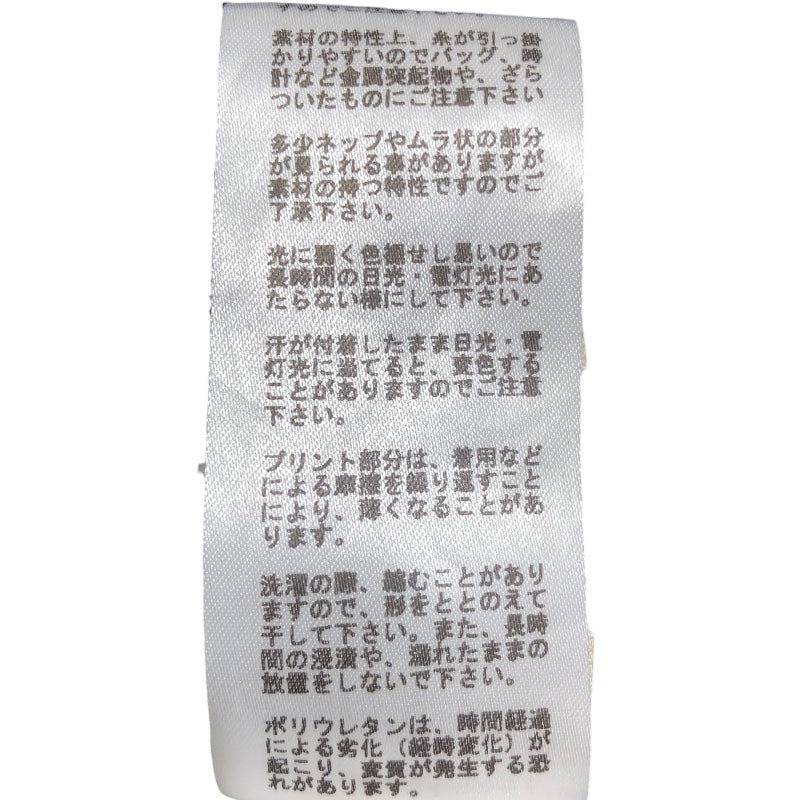 素材の特性上、糸が引っ掛
かりやすいのでバッグ、時
計など金属突起物や、ざら
ついたものにご注意下さい
多少ネップやムラ状の部分
が見られる事がありますが
素材の持つ特性ですのでご
了承下さい。
光に弱く色褪せし易いので
長時間の日光・電灯光にあ
たらない様にして下さい。
汗が付着したまま日光・電
灯光に当てると、変色する
ことがありますのでご注意
下さい。
プリント部分は、着用など
による摩擦を繰り返すこと
により、薄くなることがあ
ります。
洗濯の際、縮むことがあり
ますので、形をととのえて
干して下さい。また、長時
間の浸漬や、濡れたままの
放置をしないで下さい。
ポリウレタンは、時間経過
による劣化（経時変化）が
起こり、変質が発生する恐
れがあります。